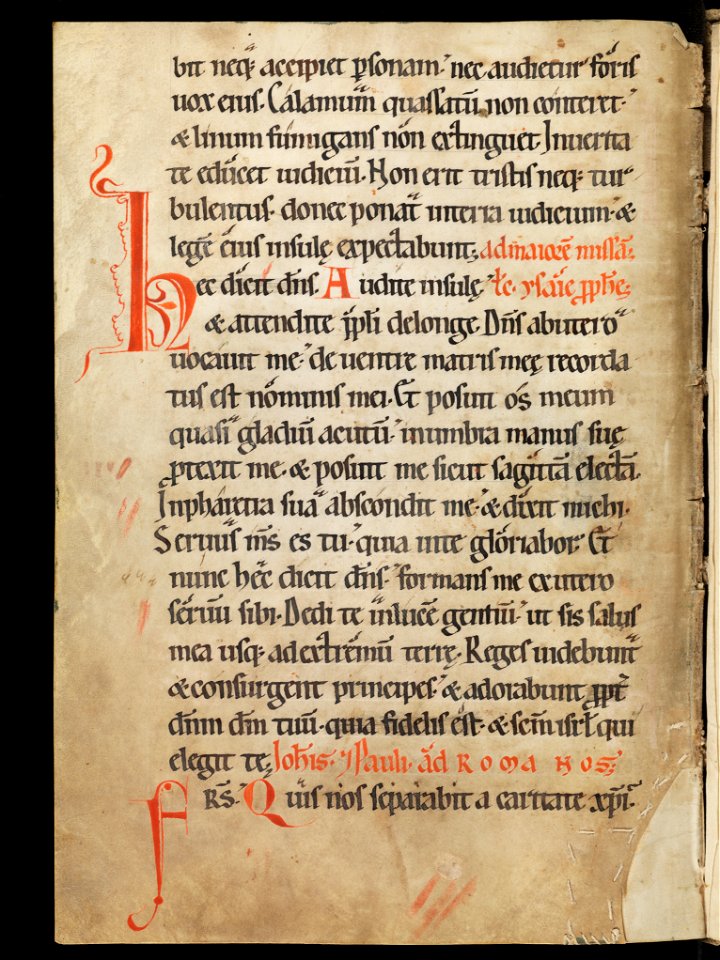 bit neq; accipiet p̱sonam. nec audietur foris
uox eius. Calamum quassatū non conteret.
& linum fumigans non extinguet. Inuerita
te educet iudiciū. Non erit tristis neq; tur
bulentus. donec ponat interra iudicium. &
legē eius insulę expectabunt; ad maiorē missā;
Hec dicit dn̄s. Audite insulę łc. ysaie p̱phe;
& attendite pp̄li delonge. Dn̄s abutero
uocauit me. de uentre matris meę recorda
tus est nominis mei. Et posuit os meum
quasi gladiū acutū. inumbra manus suę
ꝓtexit me. & posuit me sicut sagittā electā.
Inpharetra sua abscondit me. & dixit michi.
Seruus ms̄ es tu. quia inte gloriabor. Et
nunc hec dicit dn̄s. formans me exutero
seruū sibi. Dedi te inlucē gentiū. ut sis salus
mea usq; adextremū terrę. Reges uidebunt
& consurgent principes. & adorabunt ꝓpt̄
dn̄m dm̄ tuū. quia fidelis est. & scm̄ isrł qui
elegit te; Ioh̄is. ⁊ Pauli. ad ROMANOS;
FRS̄. Quis nos separabit a caritate xp̄i.